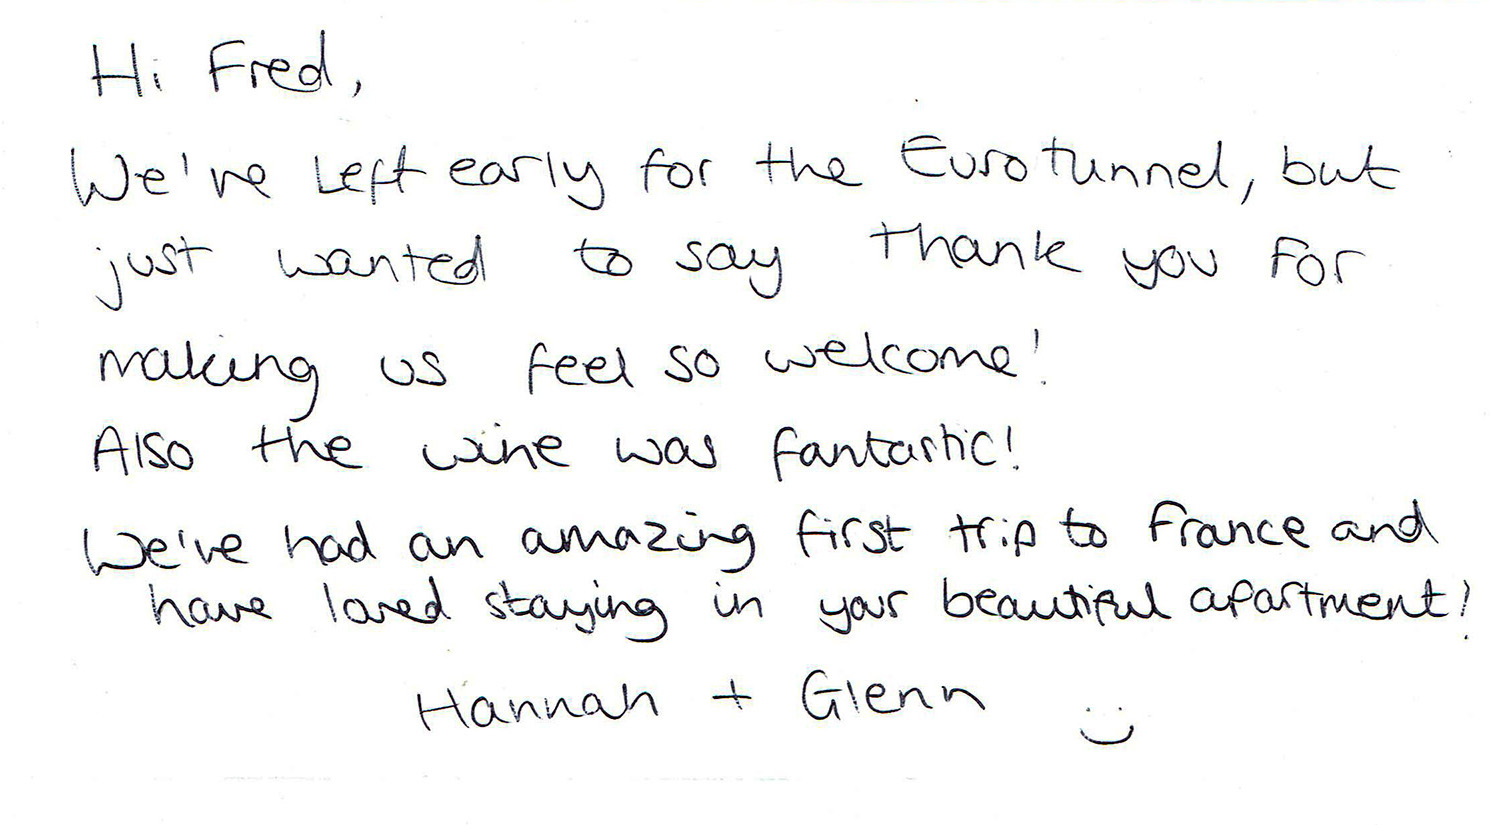 Hi Fred,
We've left early for the Eurotunnel, but
just wanted to say thank you for
making us feel so welcome!
Also the wine was fantastic!
We've had an amazing first trip to France and
have loved staying in your beautiful apartment!
Hannah + Glenn :)